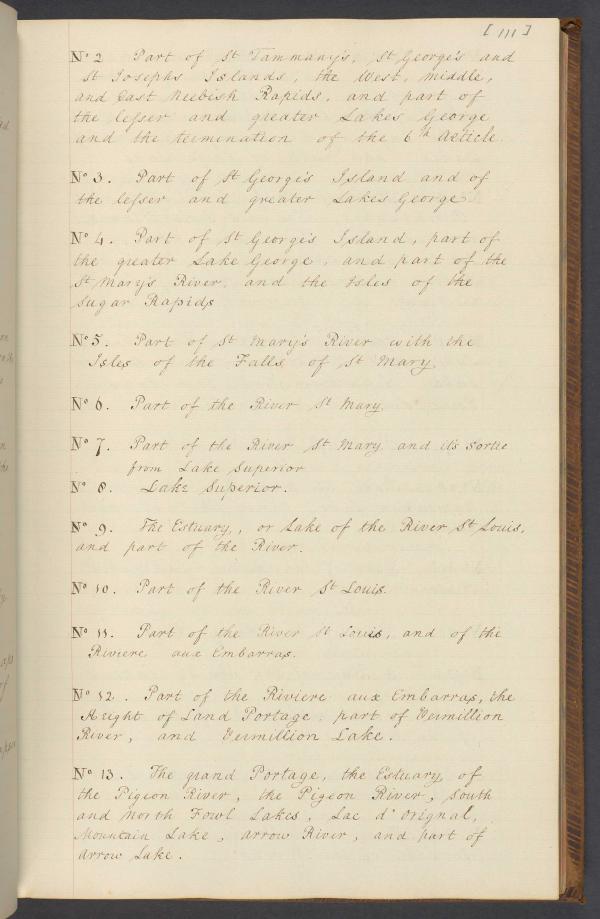 [ 111 ]
No 2 Part of St Tammany's, St George's and
St Josephs Islands, the West, middle,
and East Neebish Rapids, and part of
the lesser and greater Lakes George
and the termination of the 6th Article
No 3. Part of St George's Island and of
the lesser and greater Lakes George
No 4. Part of St George's Island, part of
the greater Lake George, and part of the
St Mary's River, and the Isles of the
Sugar Rapids
No 5. Part of St Mary's River with the
Isles of the Falls of St Mary.
No 6. Part of the River St Mary.
No 7. Part of the River St Mary and it's Sortie
from Lake Superior
No 8. Lake Superior.
No 9. The Estuary, or Lake of the River St Louis,
and part of the River.
No 10. Part of the River St Louis.
No 11. Part of the River St Louis, and of the
Riviere aux Embarras.
No 12. Part of the Riviere aux Embarras, the
Hught of Land Portage, part of Vermillion
River, and Vermillion Lake.
No 13. The grand Portage, the Estuary of
the Pigeon River, the Pigeon River, South
and North Fowl Lakes, Lac d'Orignal,
Mountain Lake, Arrow River, and part of
Arrow Lake.